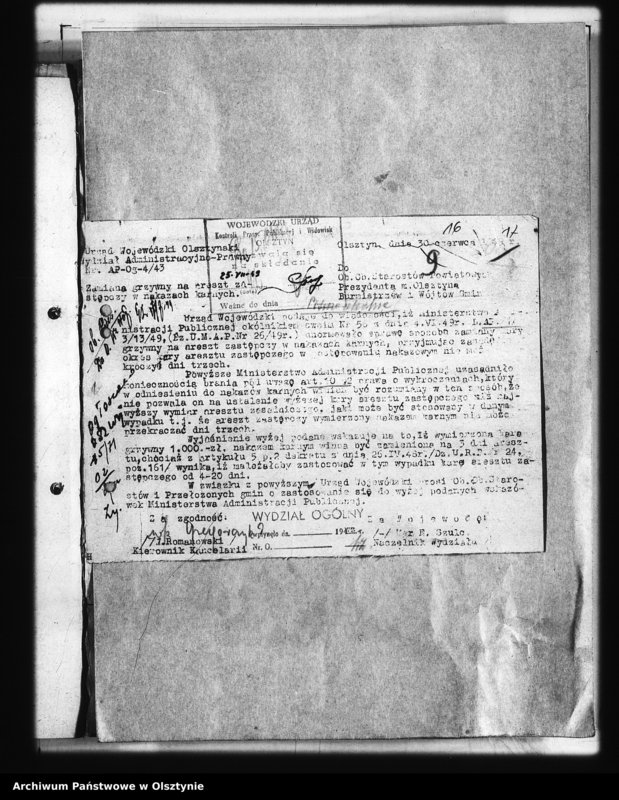 16
17
9
WOJEWÓDZKI URZĄD
Kontroli Prasy, Publikacji i Widowisk
OLSZTYN
na składanie
25.VII.49
Ważne do dnia
Urząd Wojewódzki Olsztyński
Wydział Administracyjno-Prawny
Nr. AP-Og-4/43
Olsztyn, dnia 30 czerwca
Zamiana grzywny na areszt za-
stępczy w nakazach karnych.
Do
Ob.Ob.Starostów Powiatowych
Prezydenta m.Olsztyna
Burmistrzów i Wójtów Gmin
Urząd Wojewódzki podaje do wiadomości,iż Ministerstwo
nistracji Publicznej okólnikiem swoim Nr 55 z dnia 4.VI.49r.
3/13/49,(Dz.U.M.A.P.Nr 26/49r.) unormowało sprawę sposobu zamiany kary
grzywny na areszt zastępczy w nakazach karnych, przyjmując
okres kary aresztu zastępczego w postępowaniu nakazowym nie może
kroczyć dni trzech.
Powyższe Ministerstwo Administracji Publicznej uzasadniło
koniecznością brania pod uwagę art.10 prawa o wykroczeniach,który
w odniesieniu do nakazów karnych winien być rozumiany w ten sposób,że
nie pozwala on na ustalenie wyższej kary aresztu zastępczego niż naj-
wyższy wymiar aresztu zasadniczego, jaki może być stosowany w danym
wypadku t.j. że areszt zastępczy wymierzony nakazem karnym nie może
przekraczać dni trzech.
Wyjaśnienie wyżej podane wskazuje na to,iż wymierzona kara
grzywny 1.000.-zł. nakazem karnym winna być zamieniona na 3 dni aresz-
tu,chociaż z artykułu 5 p.2 dekretu z dnia 26.IV.48r./Dz.U.R.P. Nr 24,
poz.161/ wynika,iż należałoby zastosować w tym wypadku karę aresztu za-
stępczego od 4-20 dni.
W związku z powyższym Urząd Wojewódzki prosi Ob.Ob.Staro-
stów i Przełożonych gmin o zastosowanie się do wyżej podanych wskazó-
wek Ministerstwa Administracji Publicznej.
Za zgodność:
WYDZIAŁ OGÓLNY
Za Wojewodę:
Wpłynęło dn. 194
/-/ Mgr R. Szulc
Romanowski
Kierownik Kancelarii
Nr. O.
Naczelnik Wydziału
Archiwum Państwowe w Olsztynie